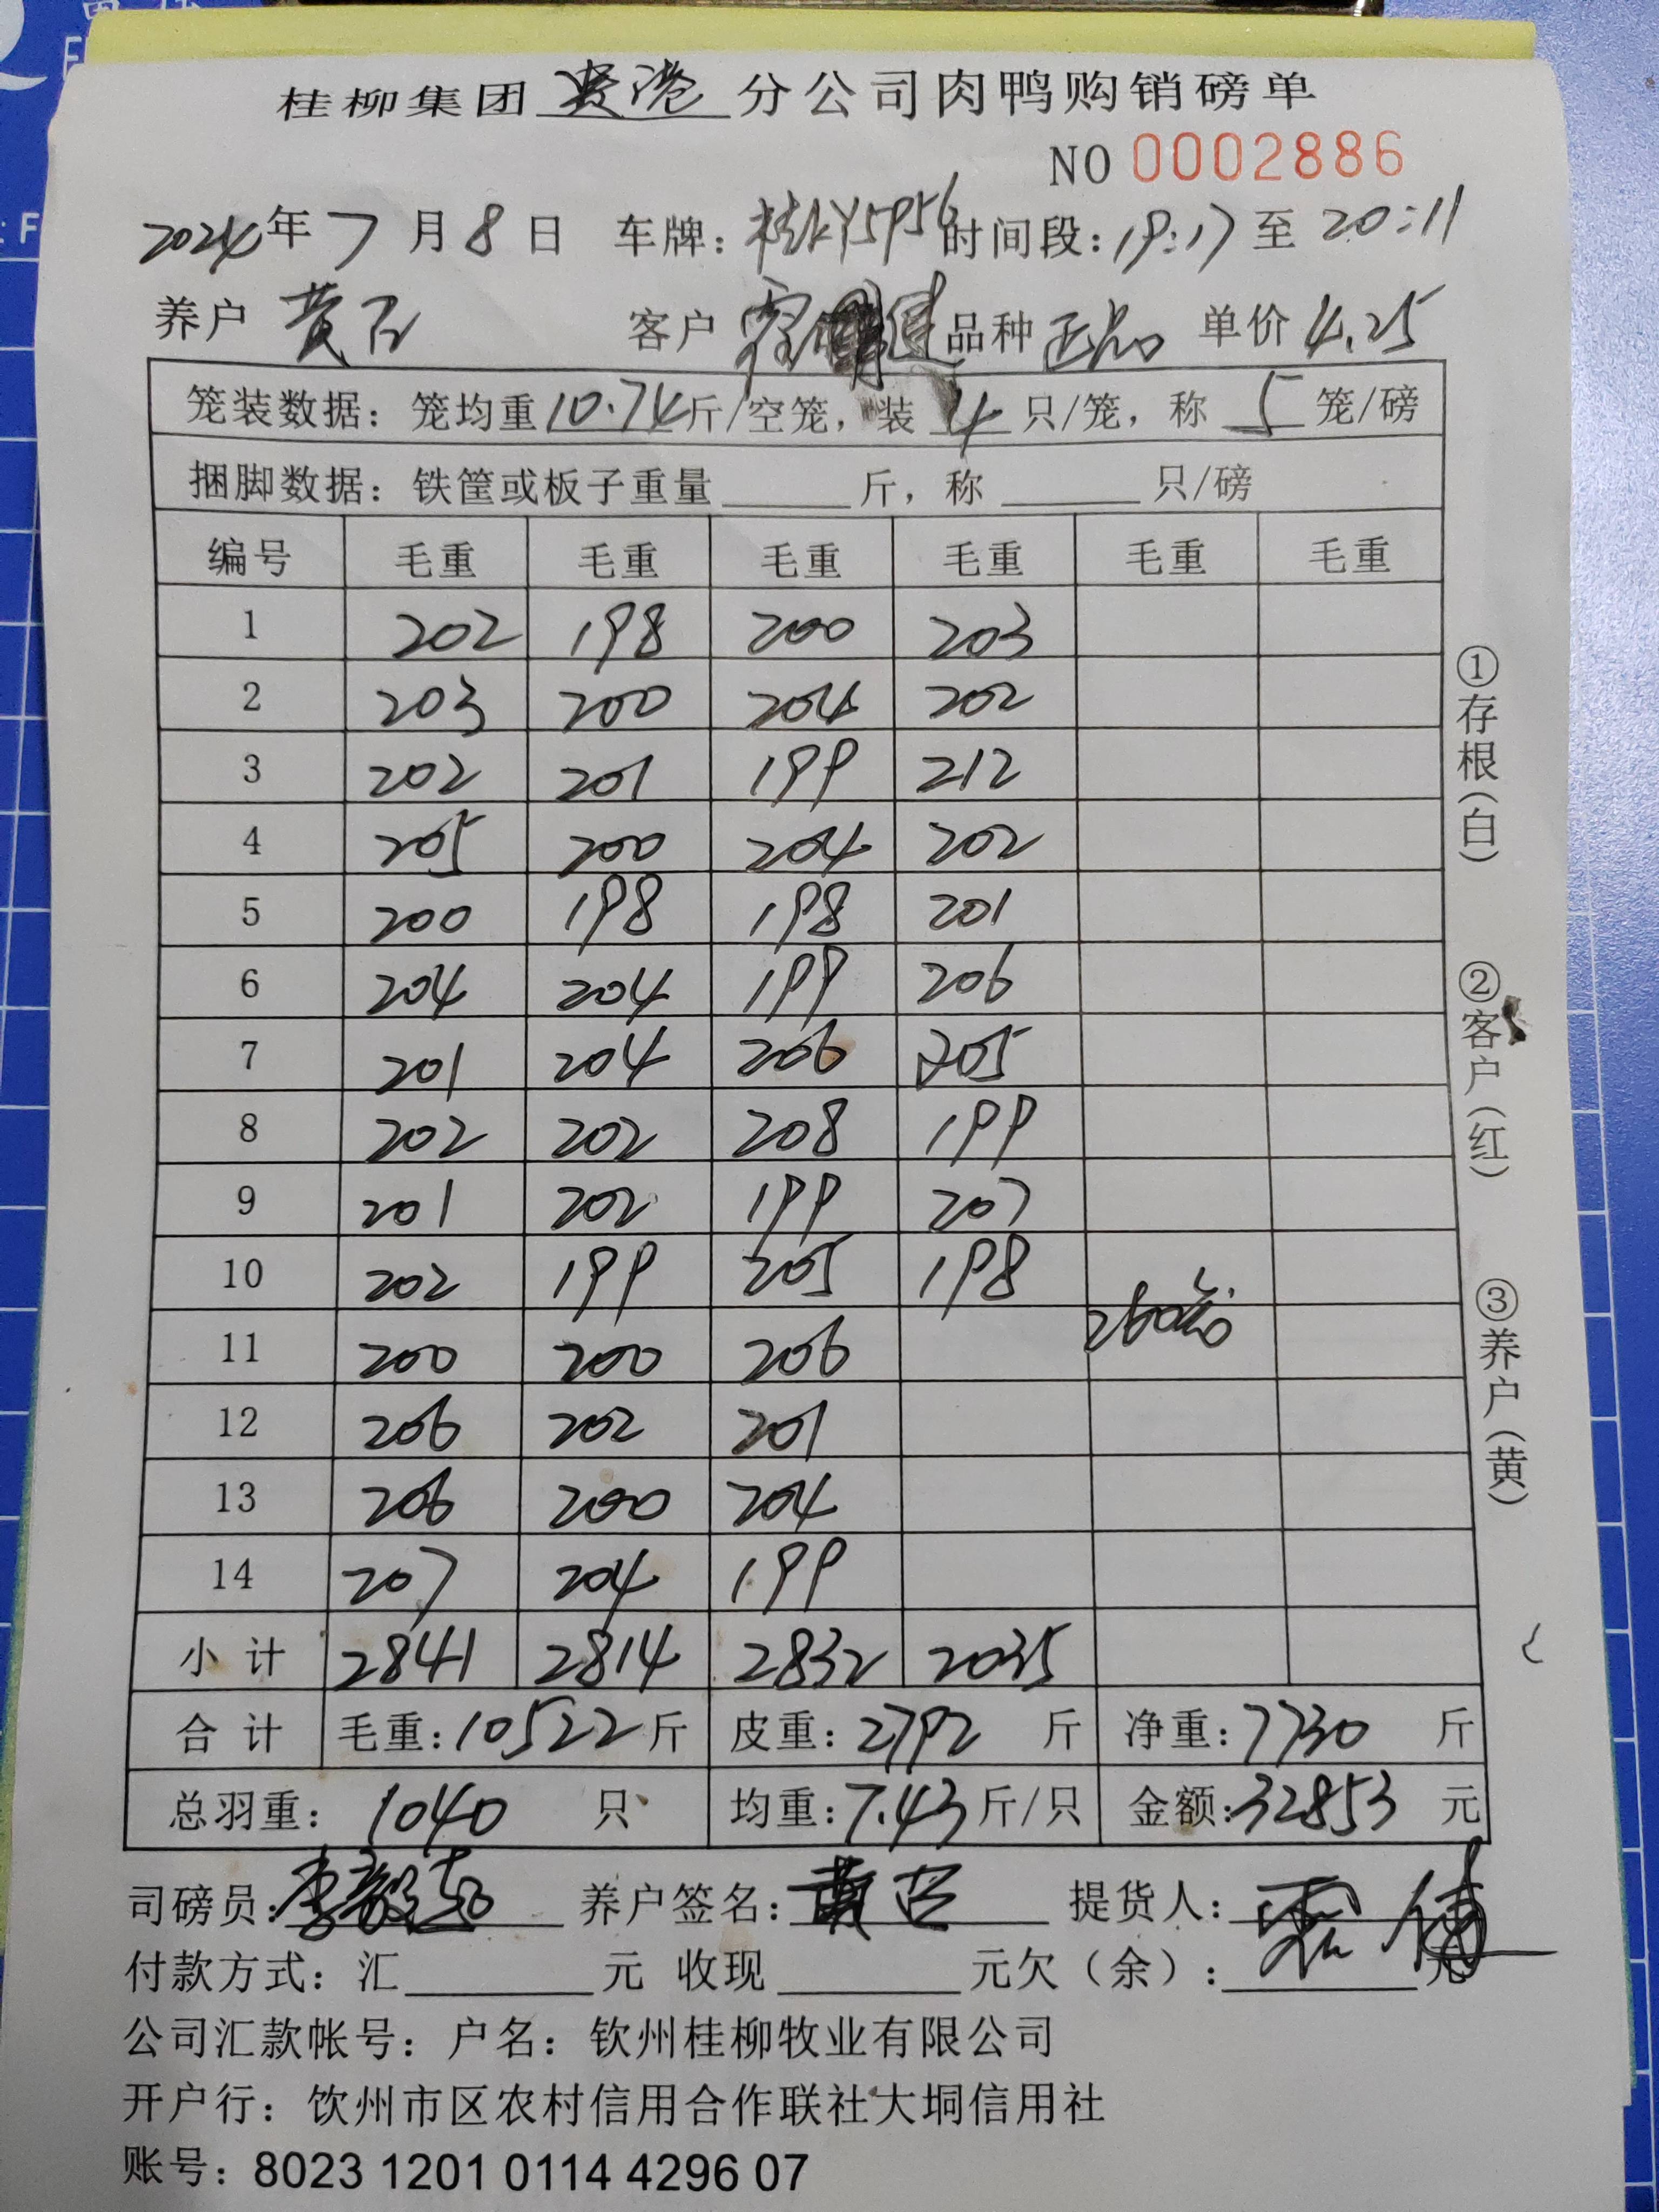 桂柳集团贵港分公司肉鸭购销磅单
NO 0002886
2024年7月8日 车牌：桂KY5956 时间段：19:17至20:11
养户 黄 客户 品种 正品 单价 4.25
笼装数据：笼均重10.74斤/空笼，装4只/笼，称5笼/磅
捆脚数据：铁筐或板子重量______斤，称______只/磅
编号 毛重 毛重 毛重 毛重 毛重 毛重
1 202 198 200 203
2 203 200 204 202
3 202 201 199 212
4 205 200 204 202
5 200 198 198 201
6 204 204 199 206
7 201 204 206 205
8 202 202 208 199
9 201 202 199 207
10 202 199 205 198
260笼
11 200 200 206
12 206 202 201
13 206 200 204
14 207 204 199
小计 2841 2814 2832 2035
合计 毛重：10522斤 皮重：2792斤 净重：7730斤
总羽重：1040只 均重：7.43斤/只 金额：32853元
①存根（白）
②客户（红）
③养户（黄）
司磅员：李 养户签名：黄 提货人：
付款方式：汇______元 收现______元欠（余）：______元
公司汇款帐号：户名：钦州桂柳牧业有限公司
开户行：饮州市区农村信用合作联社大垌信用社
账号：8023 1201 0114 4296 07